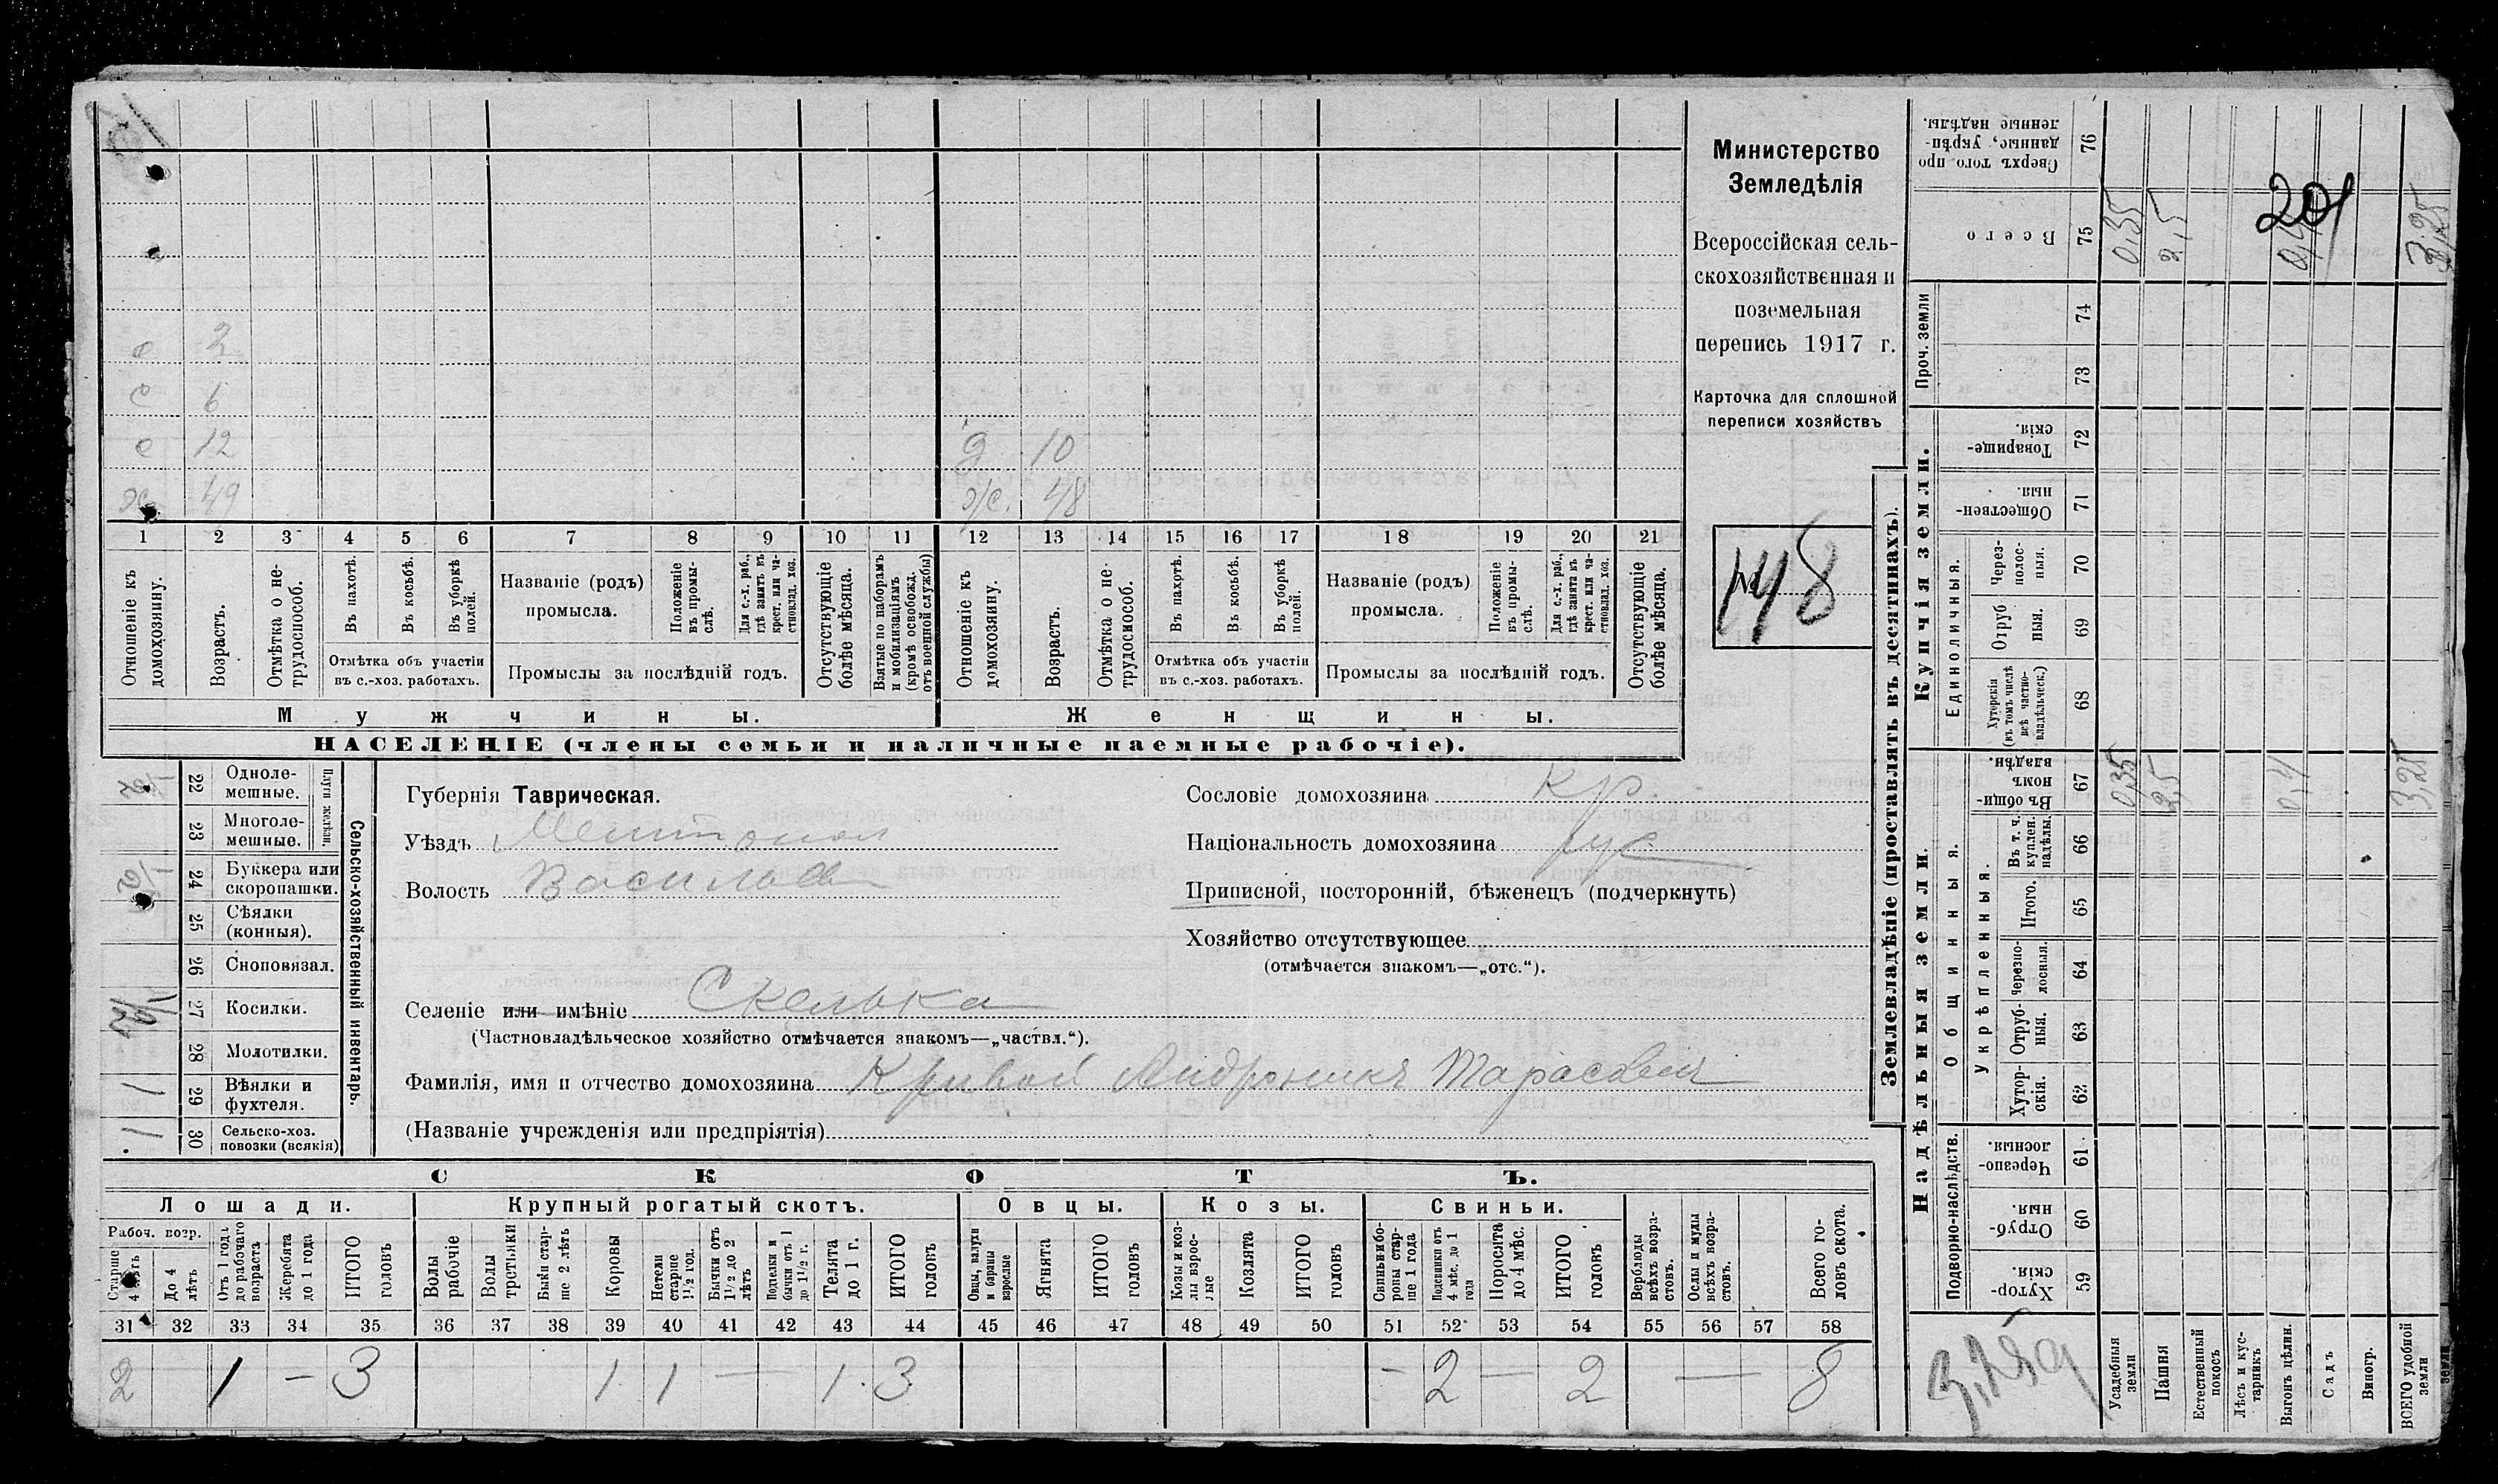 Министерство
Земледѣлія
Всероссійская сель-
скохозяйственная и
поземельная
перепись 1917 г.
Карточка для сплошной
переписи хозяйствъ
№ 48
2
6
12 10
49 ж. 48
1 2 3 4 5 6 7 8 9 10 11 12 13 14 15 16 17 18 19 20 21
Отношеніе къ домохозяину.
Возрастъ.
Отмѣтка о не-
трудоспособ.
Въ пахотѣ.
Въ косьбѣ.
Въ уборкѣ полей.
Отмѣтка объ участіи
въ с.-хоз. работахъ.
Названіе (родъ)
промысла.
Положеніе
въ промы-
слѣ.
Для с.-х. раб.,
гдѣ занятъ въ
крест. или ча-
стновлад. хоз.
Промыслы за послѣдній годъ.
Отсутствующіе
болѣе мѣсяца.
Взятые по наборамъ
и мобилизаціямъ
(кромѣ освобожд.
отъ военной службы)
Отношеніе къ
домохозяину.
Возрастъ.
Отмѣтка о не-
трудоспособ.
Въ пахотѣ.
Въ косьбѣ.
Въ уборкѣ
полей.
Отмѣтка объ участіи
въ с.-хоз. работахъ.
Названіе (родъ)
промысла.
Положеніе
въ промы-
слѣ.
Для с.-х. раб.,
гдѣ занята въ
крест. или ча-
стновлад. хоз.
Промыслы за послѣдній годъ.
Отсутствующіе
болѣе мѣсяца.
Мужчины.
Женщины.
НАСЕЛЕНІЕ (члены семьи и наличные наемные рабочіе).
22 Одноле-
мешные.
23 Многоле-
мешные.
Плуги желѣзн.
24 Буккера или
скоропашки.
25 Сѣялки
(конныя).
26 Сноповязал.
27 Косилки.
28 Молотилки.
1 29 Вѣялки и
фухтеля.
1 30 Сельско-хоз.
повозки (всякія)
Сельско-хозяйственный инвентарь.
Губернія Таврическая.
Уѣздъ Мелитопол
Волость Василье
Сословіе домохозяина кр.
Національность домохозяина рус
Приписной, посторонній, бѣженецъ (подчеркнуть)
Хозяйство отсутствующее
(отмѣчается знакомъ—„отс.“).
Селеніе или имѣніе Скелька
(Частновладѣльческое хозяйство отмѣчается знакомъ—„частвл.“).
Фамилія, имя и отчество домохозяина Кривой Андроникъ Тарасович
(Названіе учрежденія или предпріятія)
СКОТЪ.
Лошади.
Крупный рогатый скотъ.
Овцы.
Козы.
Свиньи.
Рабоч. возр.
Старше
4 лѣтъ
До 4
лѣтъ
Отъ 1 года
до рабочаго
возраста
Жеребята
до 1 года
ИТОГО
головъ
Волы
рабочіе
Волы
третьяки
Быки стар-
ше 2 лѣтъ
Коровы
Нетели
старше
1½ год.
Бычки отъ
1½ до 2
лѣтъ
Подтелки и
бычки отъ 1
до 1½ г.
Телята
до 1 г.
ИТОГО
головъ
Овцы, валухи
и бараны
взрослые
Ягнята
ИТОГО
головъ
Козы и коз-
лы взрос-
лые
Козлята
ИТОГО
головъ
Свиньи-бо-
ровы стар-
ше 1 года
Подсвинки отъ
4 мѣс. до 1
года
Поросята
до 4 мѣс.
ИТОГО
головъ
Верблюды
всѣхъ возра-
стовъ.
Ослы и мулы
всѣхъ возра-
стовъ.
Всего го-
ловъ скота.
31 32 33 34 35 36 37 38 39 40 41 42 43 44 45 46 47 48 49 50 51 52 53 54 55 56 57 58
2 1 — 3 1 1 — 1 3 — 2 — 2 — 8
Землевладѣніе (проставлять въ десятинахъ).
Надѣльныя земли.
Купчія земли.
Проч. земли
Подворно-наслѣдств.
Общинныя.
Укрѣпленныя.
Единоличныя.
Сверхъ того про-
данные, укрѣп-
ленные надѣлы.
76
Всего
75 0,35 2,5 0,4 3,25
201
74
73
Товарище-
скія.
72
Обществен-
ныя.
71
Через-
полос-
ныя.
70
Отруб
ныя.
69
Хуторскія
(въ томъ числѣ
всѣ частно-
владѣльческ.)
68
Въ общин-
номъ
владѣн.
67 0,35 2,5 0,4 3,25
Въ т. ч.
куплен.
надѣлы.
66
Итого.
65
Черезпо-
лосныя.
64
Отруб-
ныя.
63
Хутор-
скія.
62
Черезпо-
лосныя
61
Отруб-
ныя.
60
Хутор-
скія.
59
Усадебныя
земли
Пашня
Естественный
покосъ
Лѣсъ и кус-
тарникъ
Выгонъ цѣлин.
Садъ
Виногр.
ВСЕГО удобной
земли